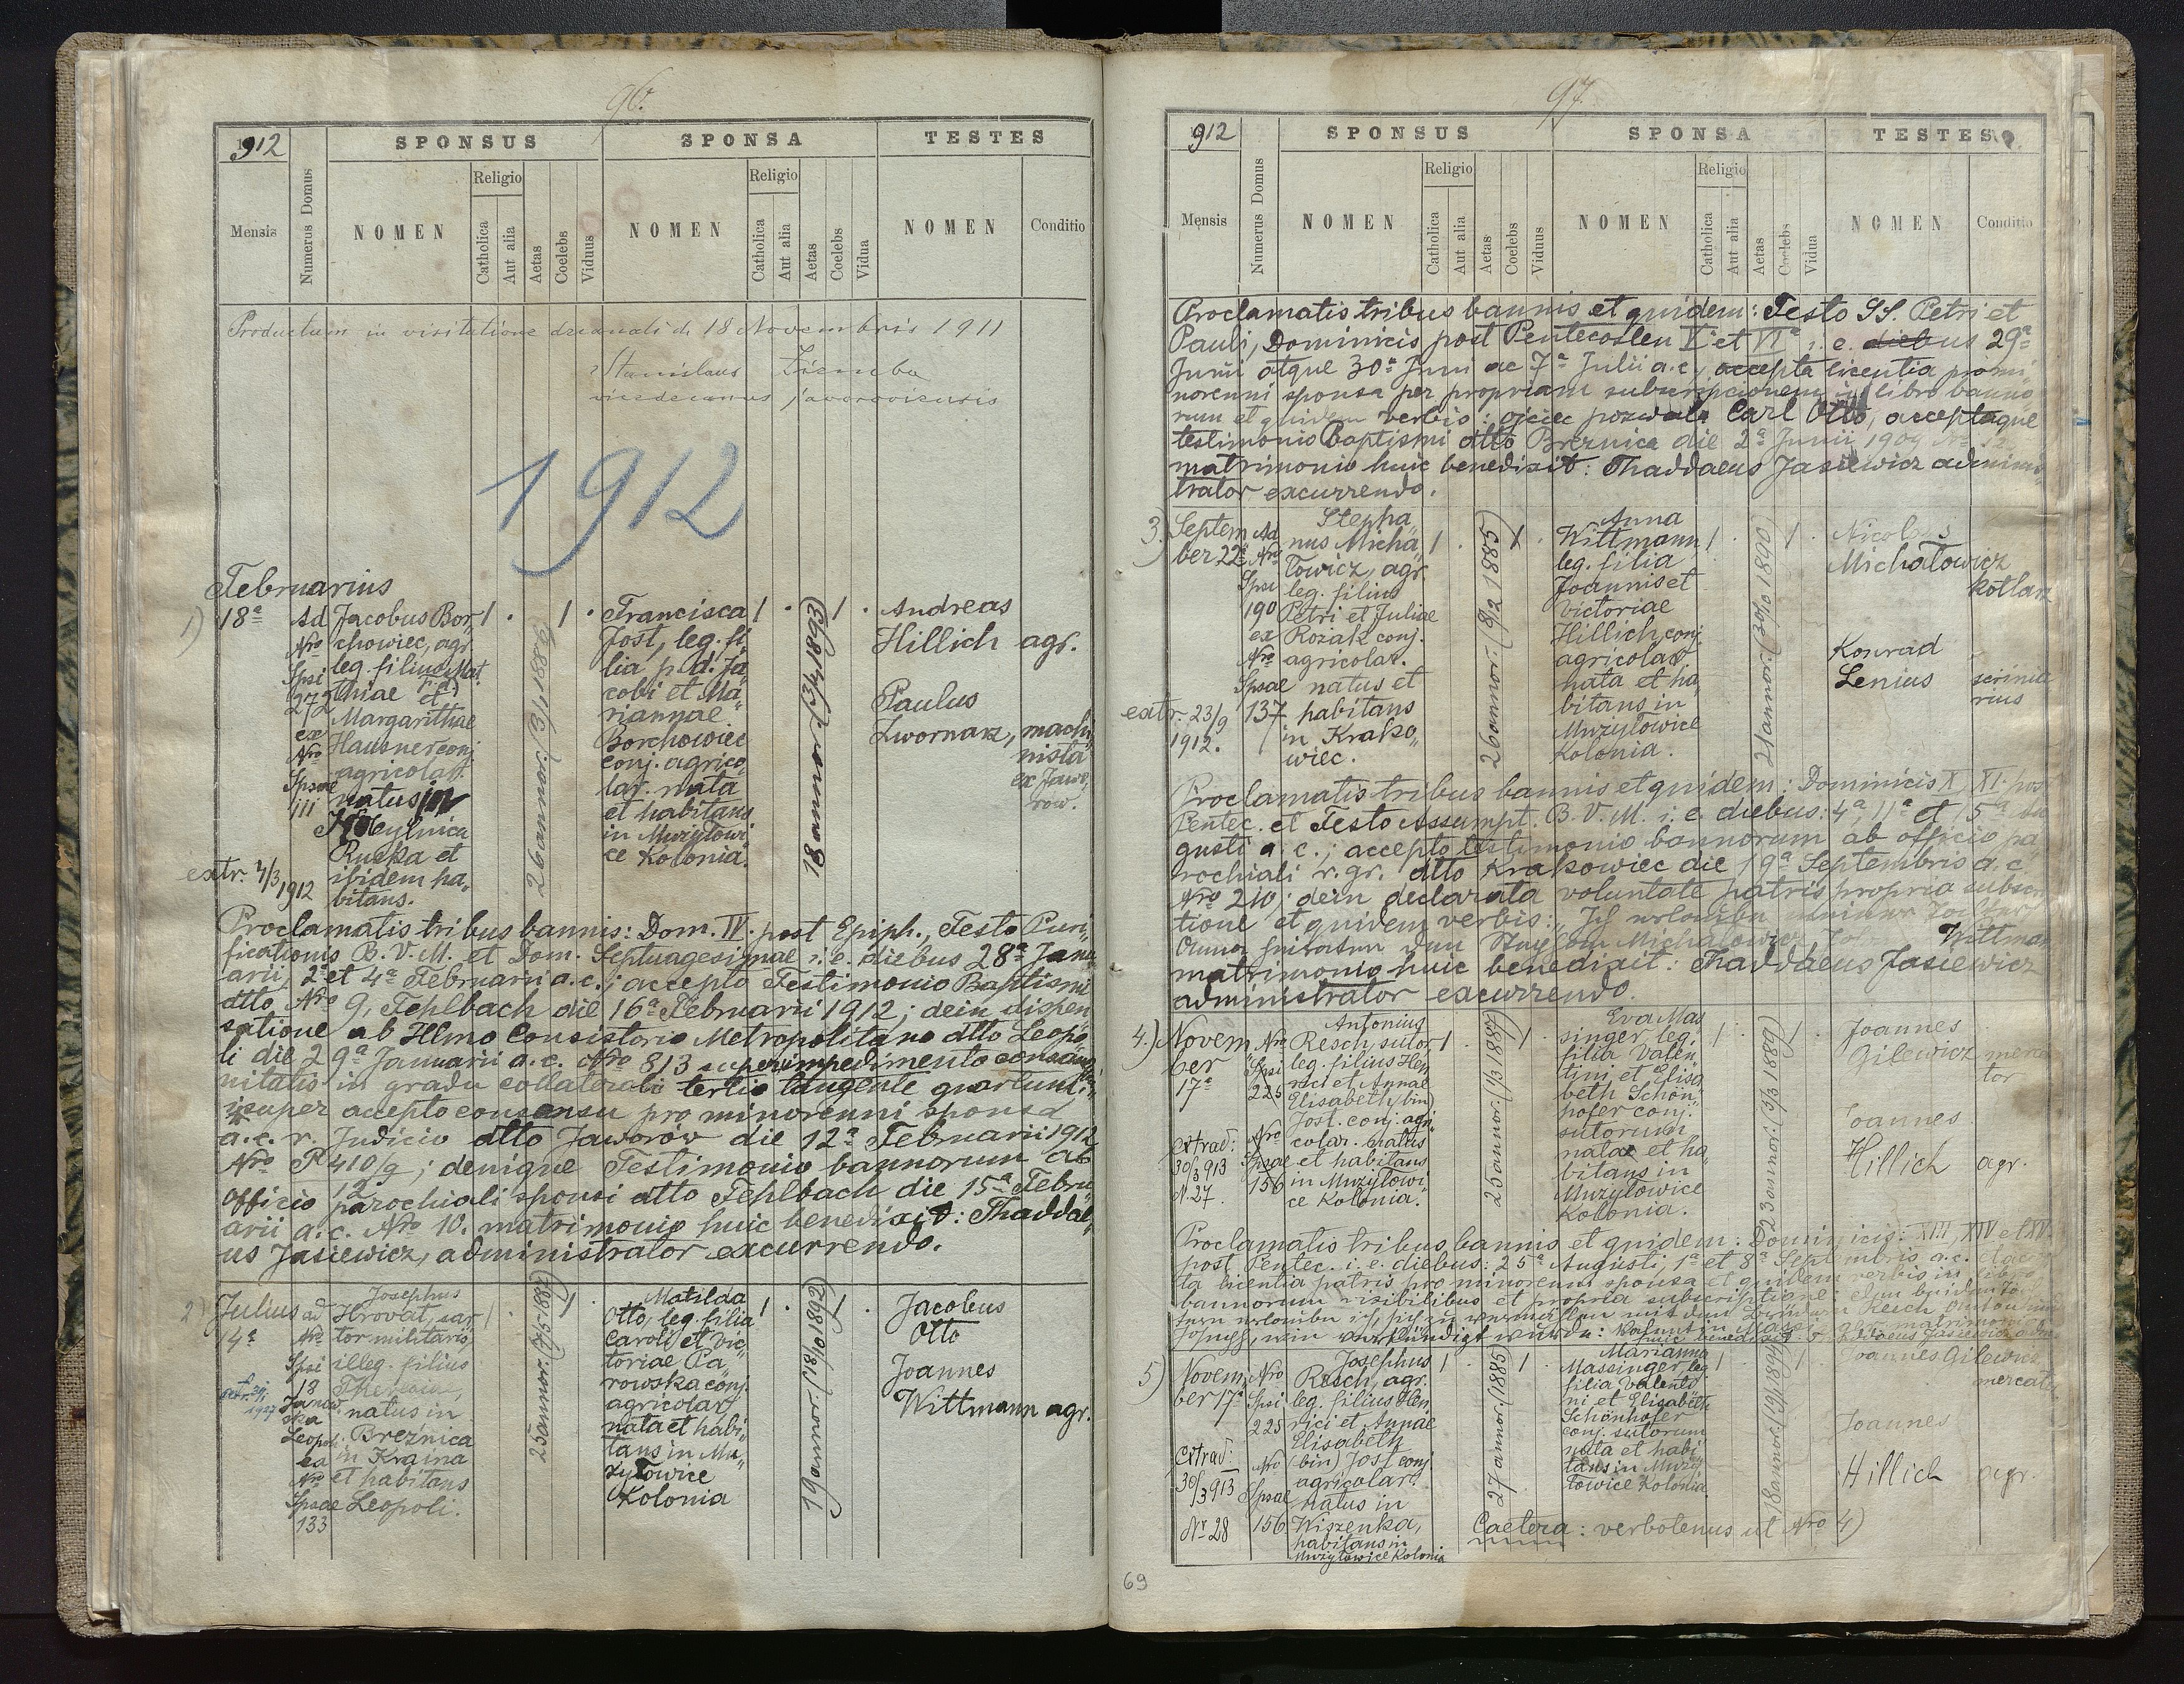 96.
912
SPONSUS
SPONSA
TESTES
Mensis
Numerus Domus
NOMEN
Religio
Catholica
Aut alia
Aetas
Coelebs
Viduus
NOMEN
Religio
Catholica
Aut alia
Aetas
Coelebs
Vidua
NOMEN
Conditio
Productum in visitatione decanali d. 18 Novembris 1911
Stanislaus Ziemba
vicedecanus javoroviensis
1912
Februarius
1)
18ª
Ad
Nro
Spsi
272
ex
Nro
Spsae
111
extr. 4/3
1912
Jacobus Bor„
chowiec, agr.
leg. filius Mat„
thiae p. d. et
Margarithae
Hausner conj.
agricolar.
natus in
Kobylnica
Ruska et
ibidem ha„
bitans.
1 .
26 annor. (3/1 1886)
1 .
Francisca
Jost, leg. fi„
lia p. d. Ja„
cobi et Ma„
riannae
Borchowiec
conj. agrico„
lar. nata
et habitans
in Mużyłowi„
ce Kolonia.
1 .
18 annor. (3/4 1893)
1 .
Andreas
Hillich agr.
Paulus
Zwornarz, machi„
nista
ex Jawo„
rów.
Proclamatis tribus bannis: Dom. IV. post Epiph., Festo Puri„
ficationis B. V. M. et Dom. Septuagesimae i. e. diebus 28ª Janu„
arii, 2ª et 4ª Februarii a. c.; accepto Testimonio Baptismi
dtto Nro 9, Fehlbach die 16ª Februarii 1912; dein dispen„
satione ab Illmo Consistorio Metropolitano dtto Leopo„
li die 29ª Januarii a. c. Nro 813 super impedimento consangui„
nitatis in gradu collaterali tertio tangente quartum;
insuper accepto consensu pro minorenni sponsa
a. c. r. Judicio dtto Jaworów die 12ª Februarii 1912
Nro P 410/9
12; denique Testimonio bannorum ab
officio parochiali sponsi dtto Fehlbach die 15ª Febru„
arii a. c. Nro 10. matrimonio huic benedixit: Thaddae„
us Jasiewicz, administrator excurrendo.
2)
Julius
14ª
ad
Nro
Spsi
18
Janow„
ska
Leopol.
ea
Nro
Spsae
133
Josephus
Hrovat, sar„
tor militaris,
illeg. filius
Theresiae,
natus in
Breźnica
in Kraina
et habitans
Leopoli.
1 .
25 annor. (7/5 1887)
1 .
Matilda
Otto, leg. filia
Caroli et Vic„
toriae Pa„
rowska conj.
agricolar.
nata et habi„
tans in Mu„
żyłowice
Kolonia
1 .
19 annor. (18/10 1892)
1 .
Jacobus
Otto
Joannes
Wittmann agr.
97
912
SPONSUS
SPONSA
TESTES
Mensis
Numerus Domus
NOMEN
Religio
Catholica
Aut alia
Aetas
Coelebs
Viduus
NOMEN
Religio
Catholica
Aut alia
Aetas
Coelebs
Vidua
NOMEN
Conditio
Proclamatis tribus bannis et quidem: Festo SS. Petri et
Pauli, Dominicis post Pentecosten V et VIª i. e. diebus 29ª
Junii atque 30ª Juni ac 7ª Julii a. c., accepta licentia pro mi„
norenni sponsa per propriam subscripcionem in libro banno„
rum et quidem verbis: ojciec pozwala Carl Otto, acceptaque
testimonio Baptismi dtto Breznica die 2ª Junii 1909
matrimonio huic benedixit: Thaddaeus Jasiewicz adminis„
trator excurrendo.
3.)
Septem
ber 22ª
Ad
Nro
Spsi
190
ex
Nro
Spsae
137
extr. 23/9
1912.
Stepha„
nus Micha„
łowicz, agr.
leg. filius
Petri et Juliae
Rożak conj.
agricolar.
natus et
habitans
in Krako„
wiec.
1 .
26 annor. (8/2 1885)
1 .
Anna
Wittmann
leg. filia
Joannis et
Victoriae
Hillich, conj.
agricolar.
nata et ha„
bitans in
Mużyłowice
Kolonia.
1 .
21 annor. (30/10 1890)
1 .
Nicolaus
Michałowicz
kotlarz
Konrad
Lenius scrinia
rius
Proclamatis tribus bannis et quidem: Dominicis X, XI. pos
Pentec. et Festo Assumpt. B. V. M. i. e. diebus: 4ª, 11ª et 15ª Au
gusti a. c.; accepto testimonio bannorum ab officio pa„
rochiali r. gr. dtto Krakowiec die 19ª Septembris a. c.
Nro 210; dein declarata voluntate patris propria subscrip
tione et quidem verbis: Ich erlaube meiner Tochter
Anna heiraten den Stephan Michałowicz Wittman
matrimonio huic benedixit: Thaddaeus Jasiewicz
administrator excurrendo.
4.)
Novem„
ber
17ª
Nro
Spsi
225
Nro
Spsae
156
extrad:
30/3 913
N. 27
Antonius
Resch, sutor
leg. filius Hen„
rici et Annae
Elisabeth (bin)
Jost. conj. agri„
colar. natus
et habitans
in Mużyłowi„
ce Kolonia.
1 .
25 annor. (1/3 1887)
1 .
Eva Mas„
singer, leg.
filia Valen„
tini et Elisa„
beth Schön„
hofer conj.
sutorum
natae et ha„
bitans in
Mużyłowice
Kolonia.
1 .
23 annor. (3/3 1889)
1 .
Joannes
Gilewicz merca
tor
Joannes
Hillich agr.
Proclamatis tribus bannis et quidem: Dominicis: XIII, XIV et XV.
post Pentec. i. e. diebus: 25ª Augusti, 1ª et 8ª Septembris a. c. et accep
ta licentia patris pro minorenni sponsa et quidem verbis in libro
bannorum visibilibus et propria subscriptione:
5)
Novem„
ber 17ª
Nro
Spsi
225
Nro
Spsae
156
extrad:
30/3 913
Nr 28
Josephus
Resch, agr.
leg. filius Hen„
rici et Annae
Elisabeth
(bin) Jost conj.
agricolar.
natus in
Wiszenka,
habitans in
Mużyłowice Kolonia
1 .
27 annor. (1885)
1 .
Marianna
Massinger leg.
filia Valenti
ni et Elisabeth
Schönhofer
conj. sutorum
nata et habi
tans in Muży
łowice Kolonia.
1 .
18 annor. (19/4 1894)
1
Joannes Gilewicz
mercator
Joannes
Hillich agr.
Caetera: verbotenus ut Nro 4)
69